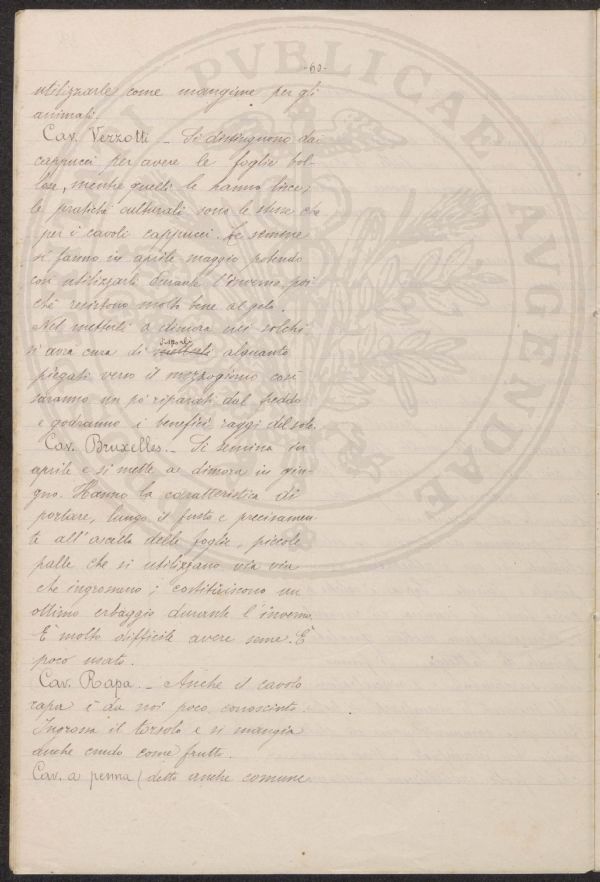 -60-
utilizzarle come mangime per gli
animali.
Cav. Verzotti - Si distinguono dai
cappucci per avere le foglie bol-
lose, mentre quelli le hanno lisce;
le pratiche culturali sono le stesse che
per i cavoli cappucci. Le semine
si fanno in aprile maggio potendo
così utilizzarli durante l'inverno, poi
chè resistono molto bene al gelo.
Nel metterli a dimora nei solchi
si avrà cura di disporli alquanto
piegati verso il mezzogiorno così
saranno un pò riparati dal freddo
e godranno i benefici raggi del sole.
Cav. Bruxelles. - Si semina in
aprile e si mette a dimora in giu-
gno. Hanno la caratteristica di
portare, lungo il fusto e precisamen-
te all'ascella delle foglie, piccole
palle che si utilizzano via via
che ingrossano; costituiscono un
ottimo erbaggio durante l'inverno.
È molto difficile avere seme. È
poco usato.
Cav. Rapa. - Anche il cavolo
rapa è da noi poco conosciuto.
Ingrossa il torsolo e si mangia
anche crudo come frutto.
Cav. a penna (detto anche comune
PVBLICAE
AVGENDAE